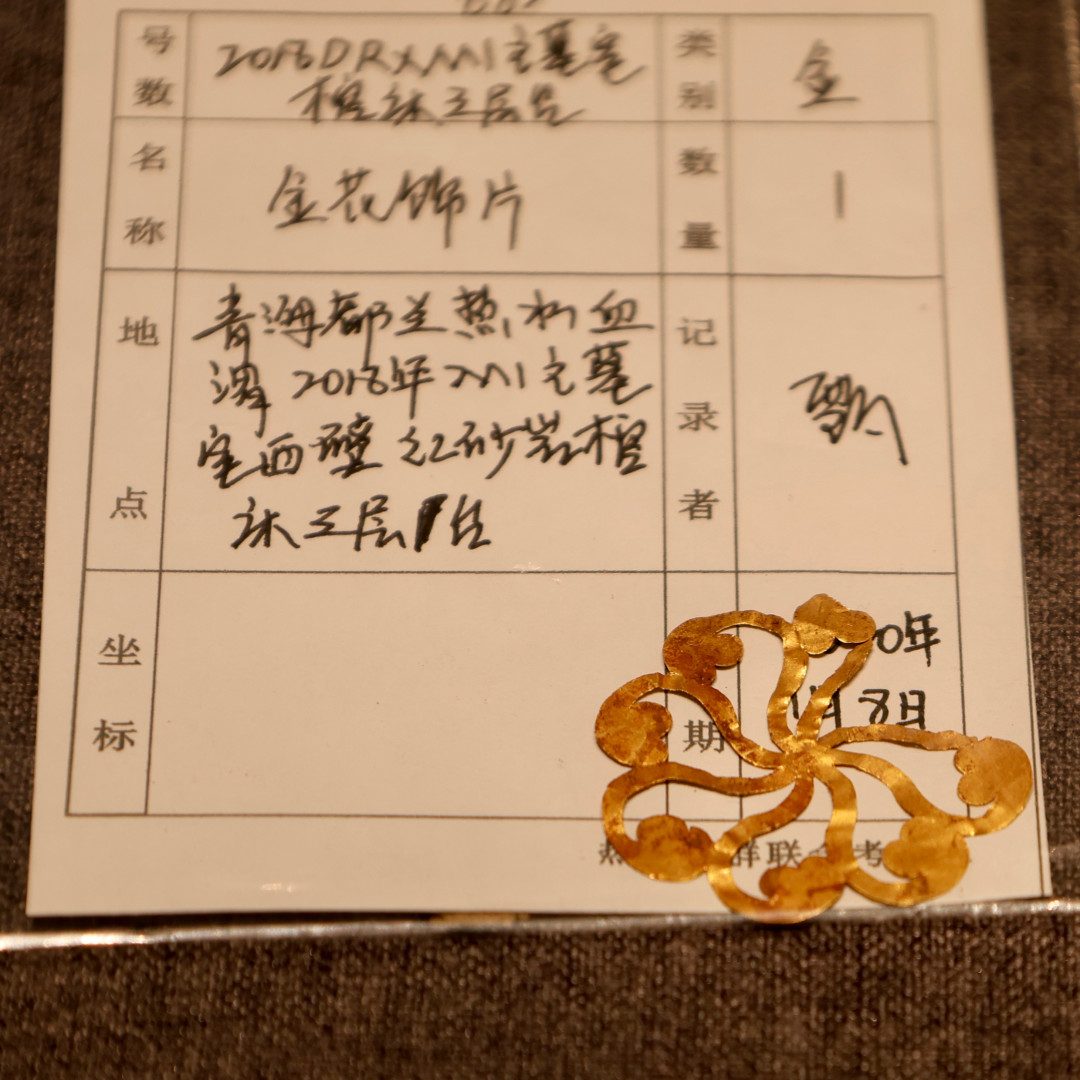 号数 2018DRXM1主墓室 类别 金
棺床三层台
名称 金花饰片 数量 1
地点 青海都兰热水血 记录者
渭2018年2M1主墓
室西壁红砂岩棺
床三层台
坐标 期 0年
月8日
热 群联 考